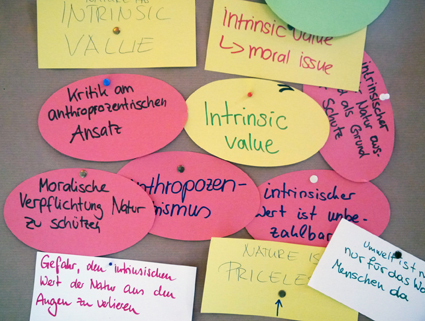 INTRINSIC
VALUE
Intrinsic Value
↳ moral issue
Kritik am
anthroprozentischen
Ansatz
Intrinsic
value
intrinsischer
Natur aus-
als Grund
Schutz
Moralische
Verpflichtung Natur
zu schützen
nthropozen-
ismus
intrinsischer
Wert ist unbe-
zahlbar
Gefahr, den intrinsischen
Wert der Natur aus den
Augen zu verlieren
NATURE IS
PRICELE
Umwelt ist n
nur für das Wo
Menschen da